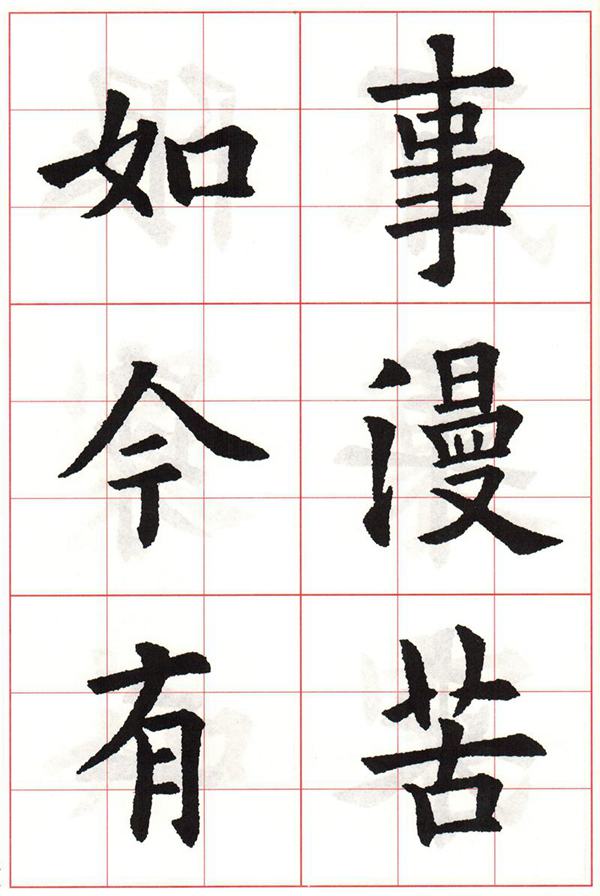 事漫苦
如今有